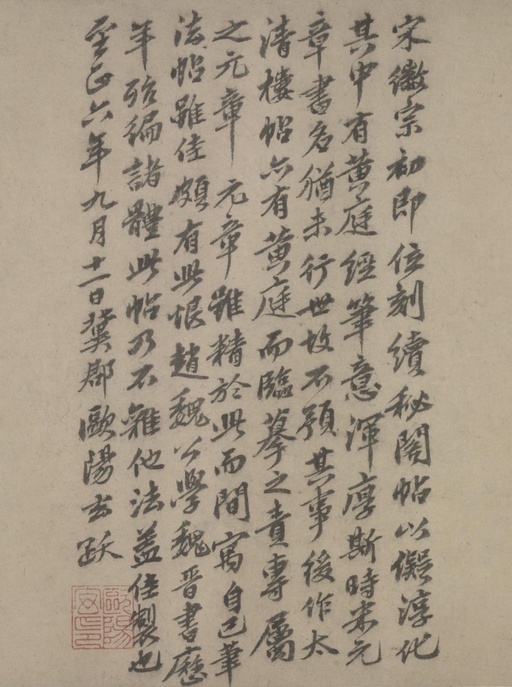 宋徽宗初即位刻續秘閣帖以儗淳化
其中有黄庭經筆意渾厚斯時米元
章書名猶未行世故不預其事後作太
清樓帖亦有黄庭而臨摹之責專屬
之元章元章雖精於此而間寓自己筆
法帖雖佳頗有此恨趙魏公學魏晉書歷
年殆徧諸體此帖乃不雜他法蓋佳製也
至正六年九月十一日冀郡歐陽玄跋